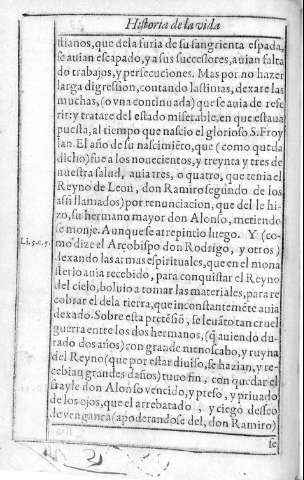 Historia de la vida
stianos, que de la furia de su sangrienta espada,
se auian escapado, y a sus successores, auian falta
do trabajos, y persecuciones. Mas por no hazer
larga digression, contando lastimas, dexare las
muchas, (o vna continuada) que se auia de refe
rir: y tratare del estado miserable, en que estaua
puesta, al tiempo que nascio el glorioso S. Froy
lan. El año de su nascimiẽto, que (como queda
dicho) fue a los nouecientos, y treynta y tres de
nuestra salud, auia tres, o quatro, que tenia el
Reyno de Leon, don Ramiro segundo de los
assi llamados) por renunciacion, que del le hi-
zo, su hermano mayor don Alonso, metiendo
se monje. Aunque se arrepintio luego. Y (co-
mo dize el Arçobispo don Rodrigo, y otros)
Li. 5. c. 5.
dexando las armas espirituales, que en el mona
sterio auia recebido, para conquistar el Reyno
del cielo, boluio a tomar las materiales, para re
cobrar el de la tierra, que inconstantemẽte auia
dexado. Sobre esta pretẽsiõ, se leuãto tan cruel
guerra entre los dos hermanos, (q̃ auiendo du-
rado dos años) con grande menoscabo, y ruyna
del Reyno (que por estar diuiso, se hazian, y re-
cebian grandes daños) tuuo fin, con quedar el
frayle don Alonso vencido, y preso, y priuado
de los ojos, que el arrebatado, y ciego desseo
de vengança (apoderandose del, don Ramiro)